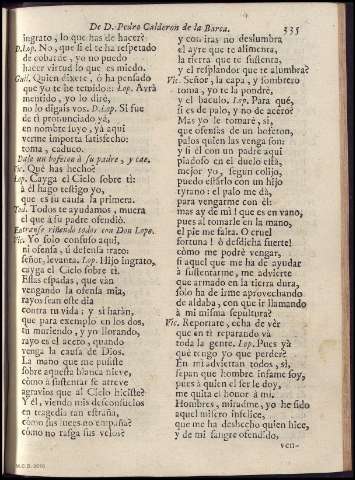 De D. Pedro Calderon de la Barca.
335
ingrato, lo que has de hacer?
D. Lop. No, que si el te ha respetado
de cobarde, yo no puedo
hacer virtud lo que es miedo.
Guil. Quien dixere, ò ha pensado
que yo te he temido:: Lop. Avrà
mentido, yo lo dirè,
no lo digais vos. D. Lop. Si fue
de ti pronunciado yà,
en nombre suyo, yà aqui
verme importa satisfecho:
toma, caduco.
Dale un bofeton à su padre, y cae.
Vic. Què has hecho?
Lop. Cayga el Cielo sobre ti:
à èl hago testigo yo,
que es su causa la primera.
Tod. Todos te ayudamos, muera
el que à su padre ofendiò.
Entranse riñendo todos con Don Lope.
Vic. Yo solo confuso aqui,
ni ofensa, ù defensa trato:
señor, levanta. Lop. Hijo ingrato,
cayga el Cielo sobre ti.
Essas espadas, que vàn
vengando la ofensa mia,
rayos sean oste dia
contra tu vida: y sì haràn,
que para exemplo en los dos,
tu muriendo, y yo llorando,
rayo es el acero, quando
venga la causa de Dios.
La mano que me pusiste
sobre aquesta blanca nieve,
còmo à sustentar se atreve
agravios que al Cielo hiciste?
Y èl, viendo mis desconsuelos
en tragedia tan estraña,
còmo sus luces no empaña?
còmo no rasga sus velos?
y con iras no deslumbra
el ayre que te alimenta,
la tierra que te sustenta,
y el resplandor que te alumbra?
Vic. Señor, la capa, y sombrero
toma, yo te la pondrè,
y el baculo. Lop. Para què,
si es de palo, y no de acero?
Mas yo le tomarè, si,
que ofensas de un bofeton,
palos quien las venga son:
y si èl con un padre aqui
piadoso en el duelo està,
mejor yo, segun colijo,
puedo estàrlo con un hijo
tyrano: el palo me dà,
para vengarme con èl:
mas ay de mi! que es en vano,
pues al tomarle en la mano,
el pie me falta. O cruel
fortuna! ò desdicha fuerte!
còmo me podrè vengar,
si aquel que me ha de ayudar
à sustentarme, me advierte
que armado en la tierra dura,
solo ha de irme aprovechando
de aldaba, con que ir llamando
à mi misma sepultura?
Vic. Reportate, echa de vèr
que en ti reparando và
toda la gente. Lop. Pues yà
què tengo yo que perder?
En mi adviertan todos, sì,
sepan que hombre infame soy,
pues à quien el ser le doy,
me quita el honor à mi.
Hombres, miradme, yo he sido
aquel misero infelice,
que me ha deshecho quien hice,
y de mi sangre ofendido,
ven-
M.C.D. 2010